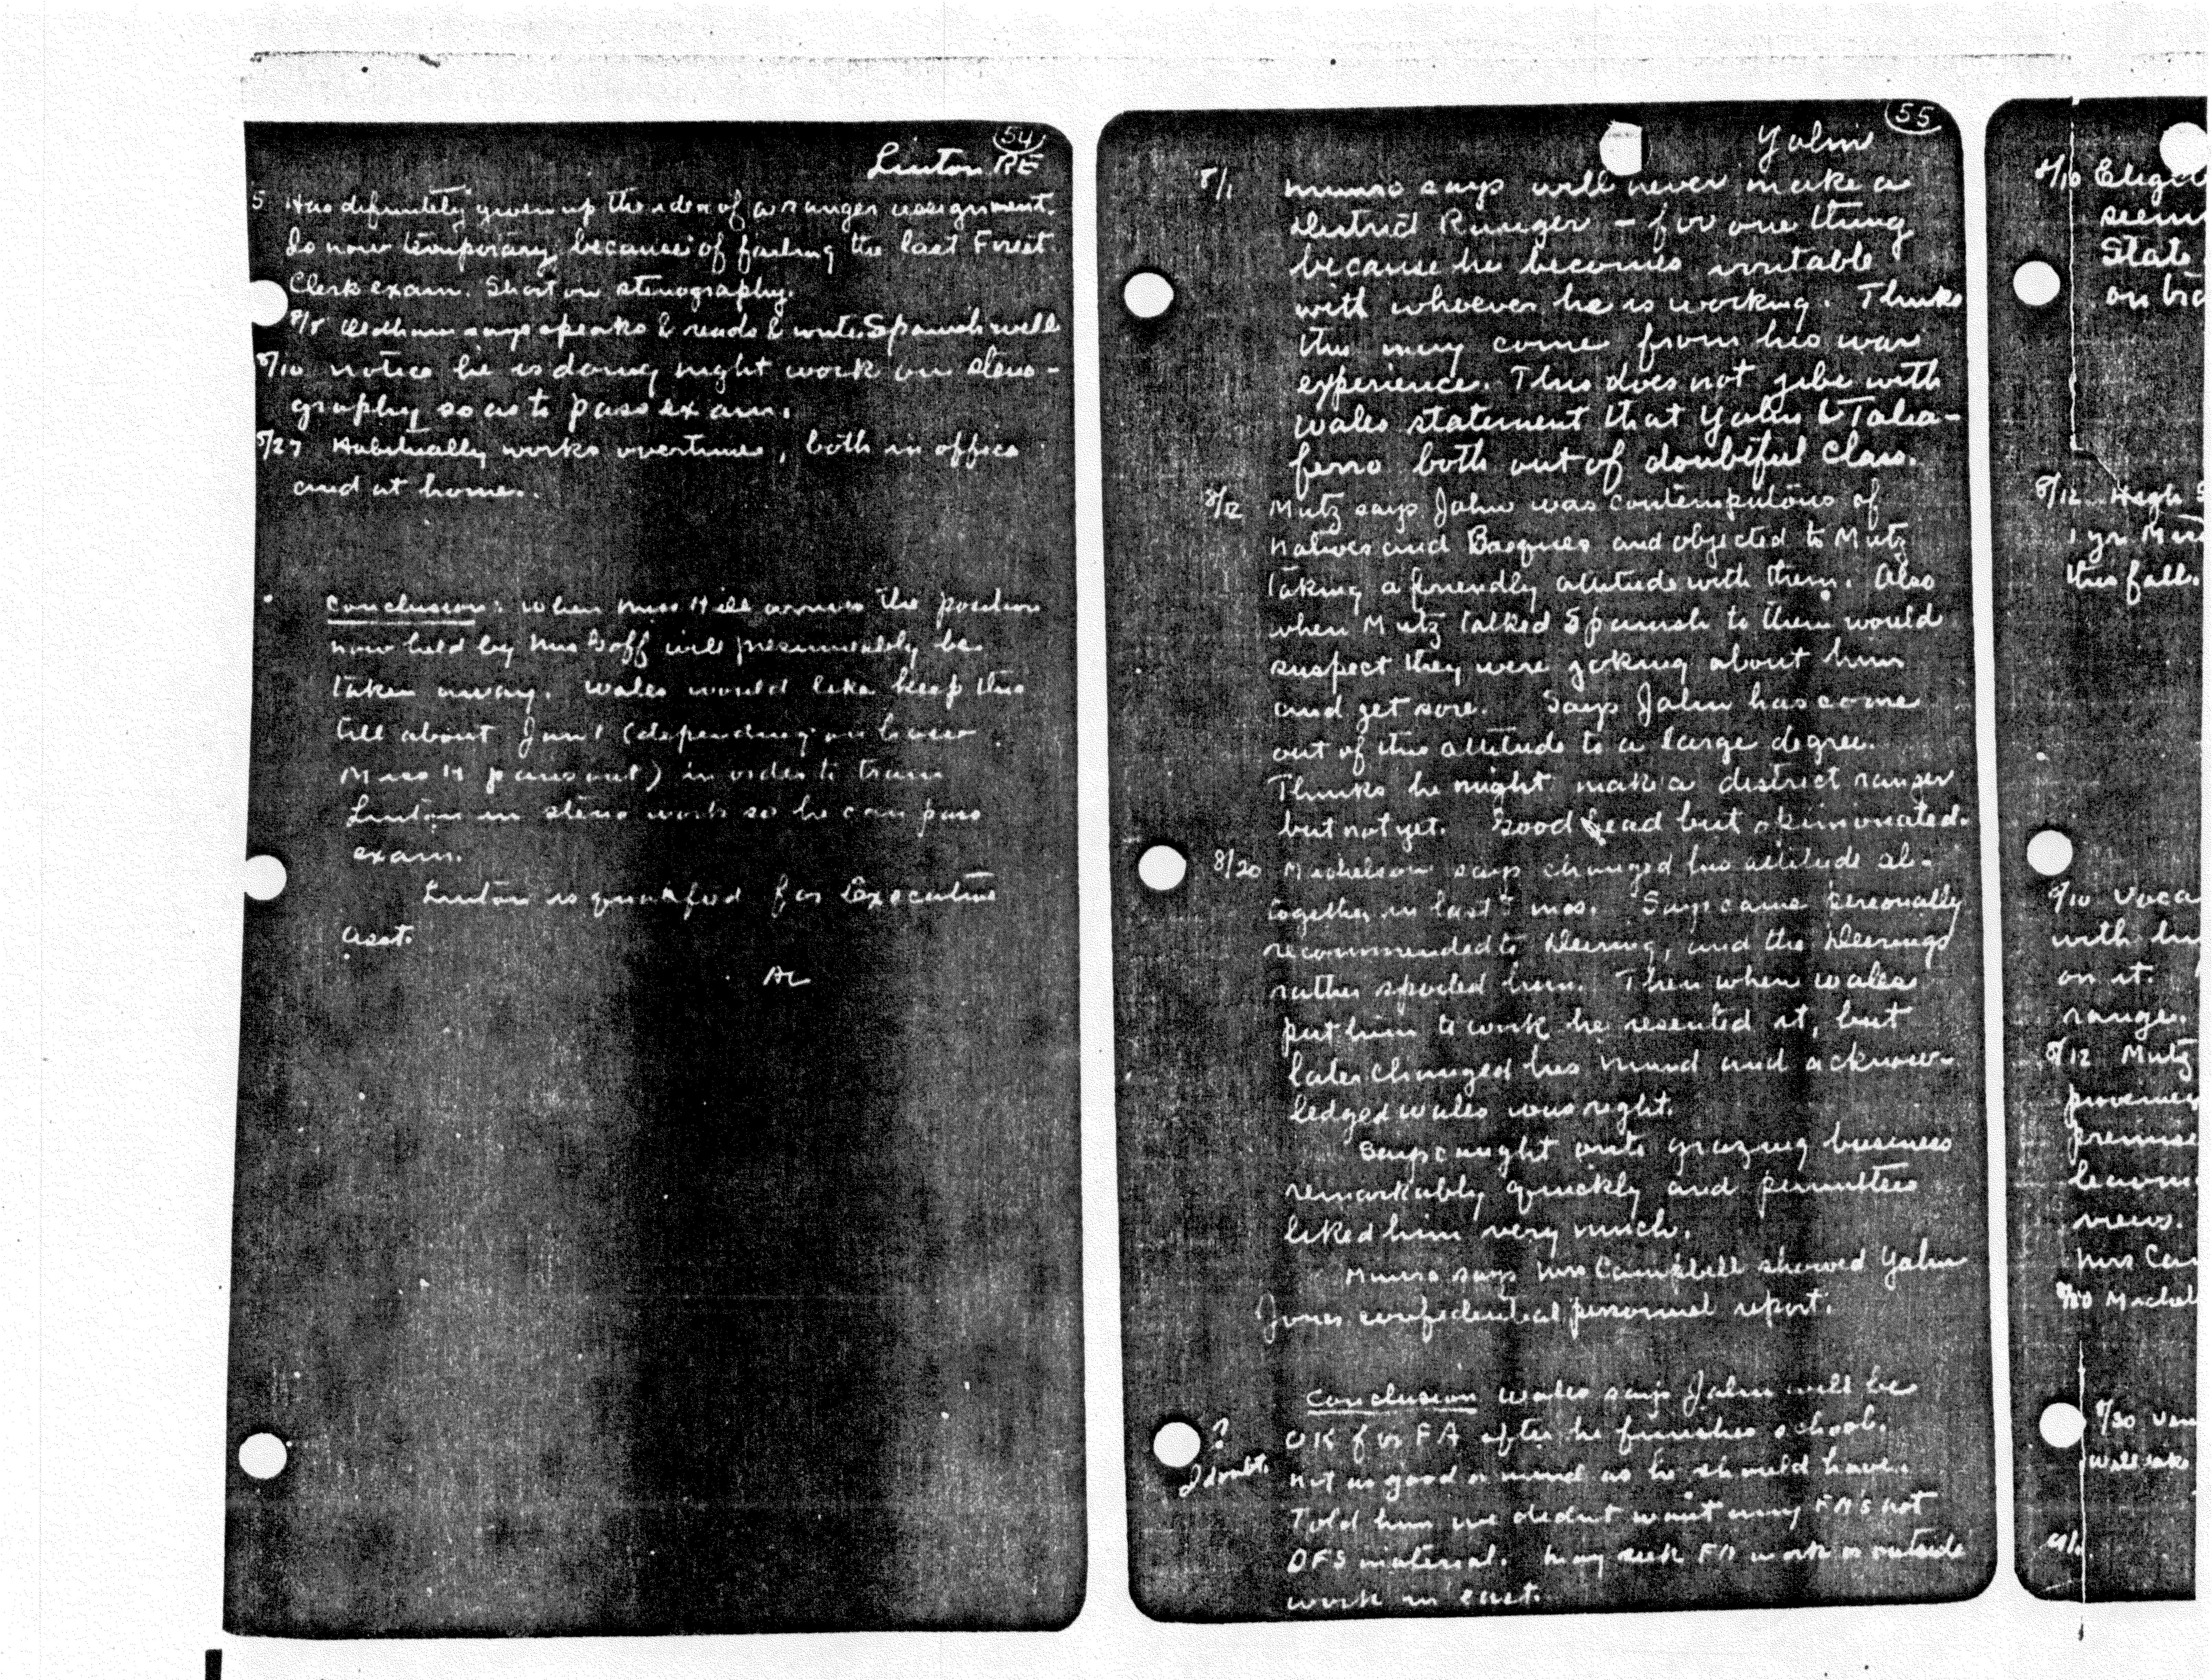 54
Linton RE
5 Has definitely given up the idea of a ranger assignment.
Is now temporary because of failing the last Forest
Clerk exam. Short on stenography.
8/8 Oldham says speaks & reads & writes Spanish well
8/10 notice he is doing night work on steno-
graphy so as to pass exam.
8/27 Habitually works overtime, both in office
and at home.
Conclusion: When Miss Hill arrives the position
now held by Mrs Goff will presumably be
taken away. Wales would like keep this
till about Jan 1 (depending on how
Miss H pans out) in order to train
Linton in steno work so he can pass
exam.
Linton is qualified for Executive
Asst.
AL
55
Yahn
8/1 Munro says will never make a
district Ranger - for one thing
because he becomes irritable
with whoever he is working. Thinks
this may come from his war
experience. This does not gibe with
Wales statement that Yahn & Talia-
ferro both out of doubtful class.
8/12 Mutz says Jahn was contemputous of
natives and Basques and objected to Mutz
taking a friendly attitude with them. Also
when Mutz talked Spanish to them would
suspect they were joking about him
and get sore. Says Jahn has come
out of this attitude to a large degree.
Thinks he might make a district ranger
but not yet. Good head but opinionated.
8/20 Michelson says changed his attitude al-
together in last mos. Says came personally
recommended to Deering, and the Deerings
rather spoiled him. Then when Wales
put him to work he resented it, but
later changed his mind and acknow-
ledged Wales was right.
Says caught onto grazing business
remarkably quickly and permittees
liked him very much.
Munro says Mrs Campbell showed Yahn
Jones confidential personnel report.
Conclusion Wales says Jahn will be
? OK for FA after he finishes school.
I doubt. Not as good a mind as he should have.
Told him we didnt want any FA's not
DFS material. May seek FA work or outside
work in east.
8/10
State
8/12 Hugh
1 yr
this fall.
8/10
with
on it.
range.
8/12 Mutz
views.
Mrs
8/30
will take